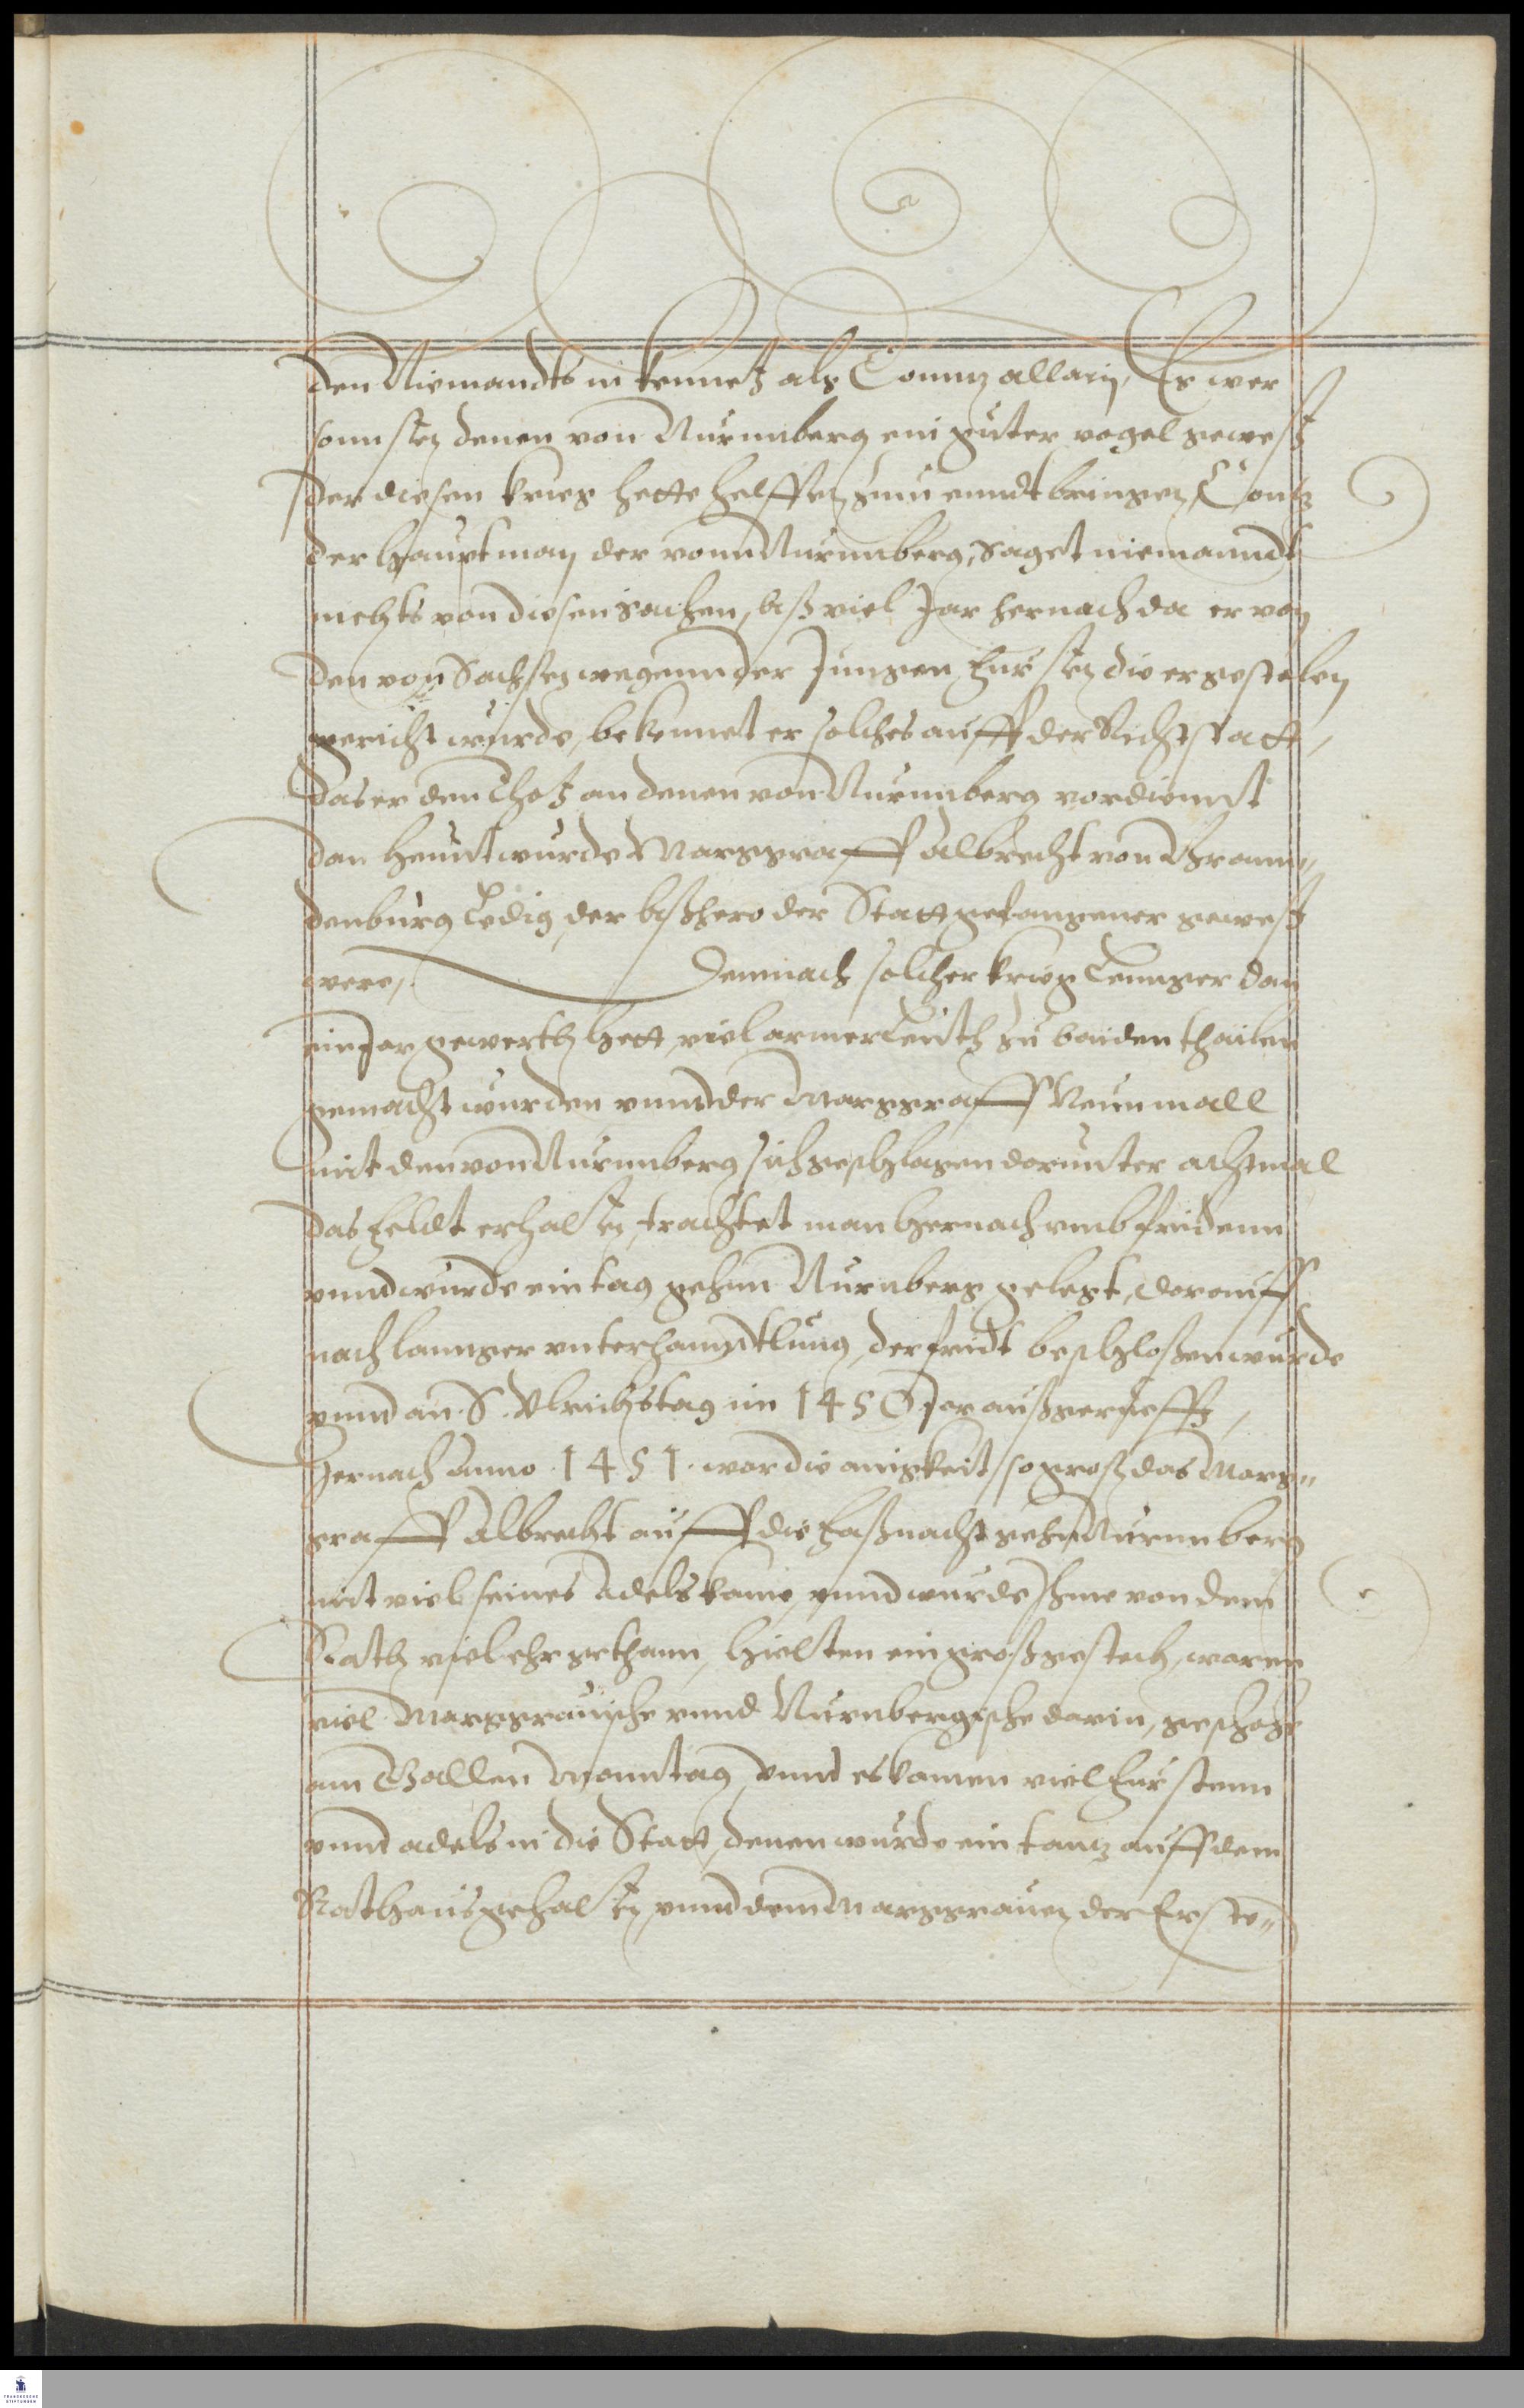 den Niemandts in kennet als Connz allain, Es wer
sonnsten denen von Nurmberg ein guter vogel gewest
der diesen krieg hette helffen zum enndt bringen, Contz
der Hauptman der vonn Nurmberg, saget niemanndt
nichts von diesen sachen, biß viel Jar hernach da er von
den von Sachsen wegenn der Jungen Fürsten die er gestolen
gericht wurde, bekennet er solches auff der Richtstatt,
das er den Thot an denen von Nurmberg verdiennt
dan heint wurde Marggraff Albrecht von Brann-
denburg Ledig, der bißhero der Statt gefangener gewest
were, Demnach solcher krieg Lennger dan
ein Jar gewerth hett, viel armer Leuth zu baiden theilen
gemacht wurden vnnd der Marggraff Neunmall
mit den von Nurmberg sich geschlagen dorunter achtmal
das Feldt erhalten, trachtet man hernach vmb fridenn
vnnd wurde ein tag gehnn Nurnberg gelegt, dorauff
nach lannger vnterhanndtlung, der fridt beschloßen wurde
vnnd an S. Vlrichstag im 1450 Jar außgerufft,
Hernach Anno 1451. war die ainigkeit so groß das Marg-
graff Albrecht auff die Faßnacht gehn Nurmberg
mit viel seines Adels kame, vnnd wurde Ihme von dem
Rath viel ehr gethann, hielten ein groß gestech, waren
viel Marggrauische vnnd Nurnbergische darin, geschahe
am Gallen Monntag, vnnd es kamen viel Fürstenn
vnnd adels in die Statt, denen wurde ein tanz auff dem
Rathaus gehalten, vnnd dem Marggrauen der Erste-
FRANCKESCHE
STIFTUNGEN